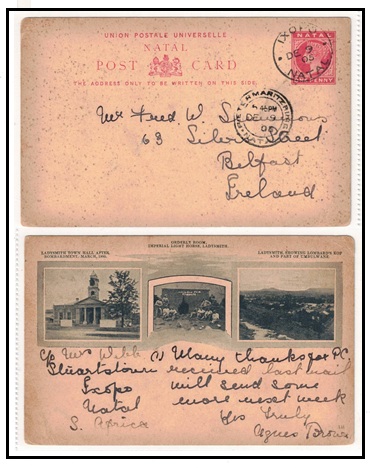 UNION POSTALE UNIVERSELLE
NATAL
POST CARD
THE ADDRESS ONLY TO BE WRITTEN ON THIS SIDE.
NATAL
PENNY
IXOPO
DE 9
05
NATAL
DE 9
05
NATAL
Mr Fred W.
63 Silver Street
Belfast
Ireland
LADYSMITH TOWN HALL AFTER
BOMBARDMENT, MARCH, 1900.
ORDERLY ROOM,
IMPERIAL LIGHT HORSE, LADYSMITH.
LADYSMITH, SHOWING LOMBARD'S KOP
AND PART OF UMBULWANE.
c/o Mrs Webb
Stuartstown
Ixopo
Natal
S. Africa
Many thanks for P.C.
received last mail
will send some
more next week
Yrs truly
Agnes Brown